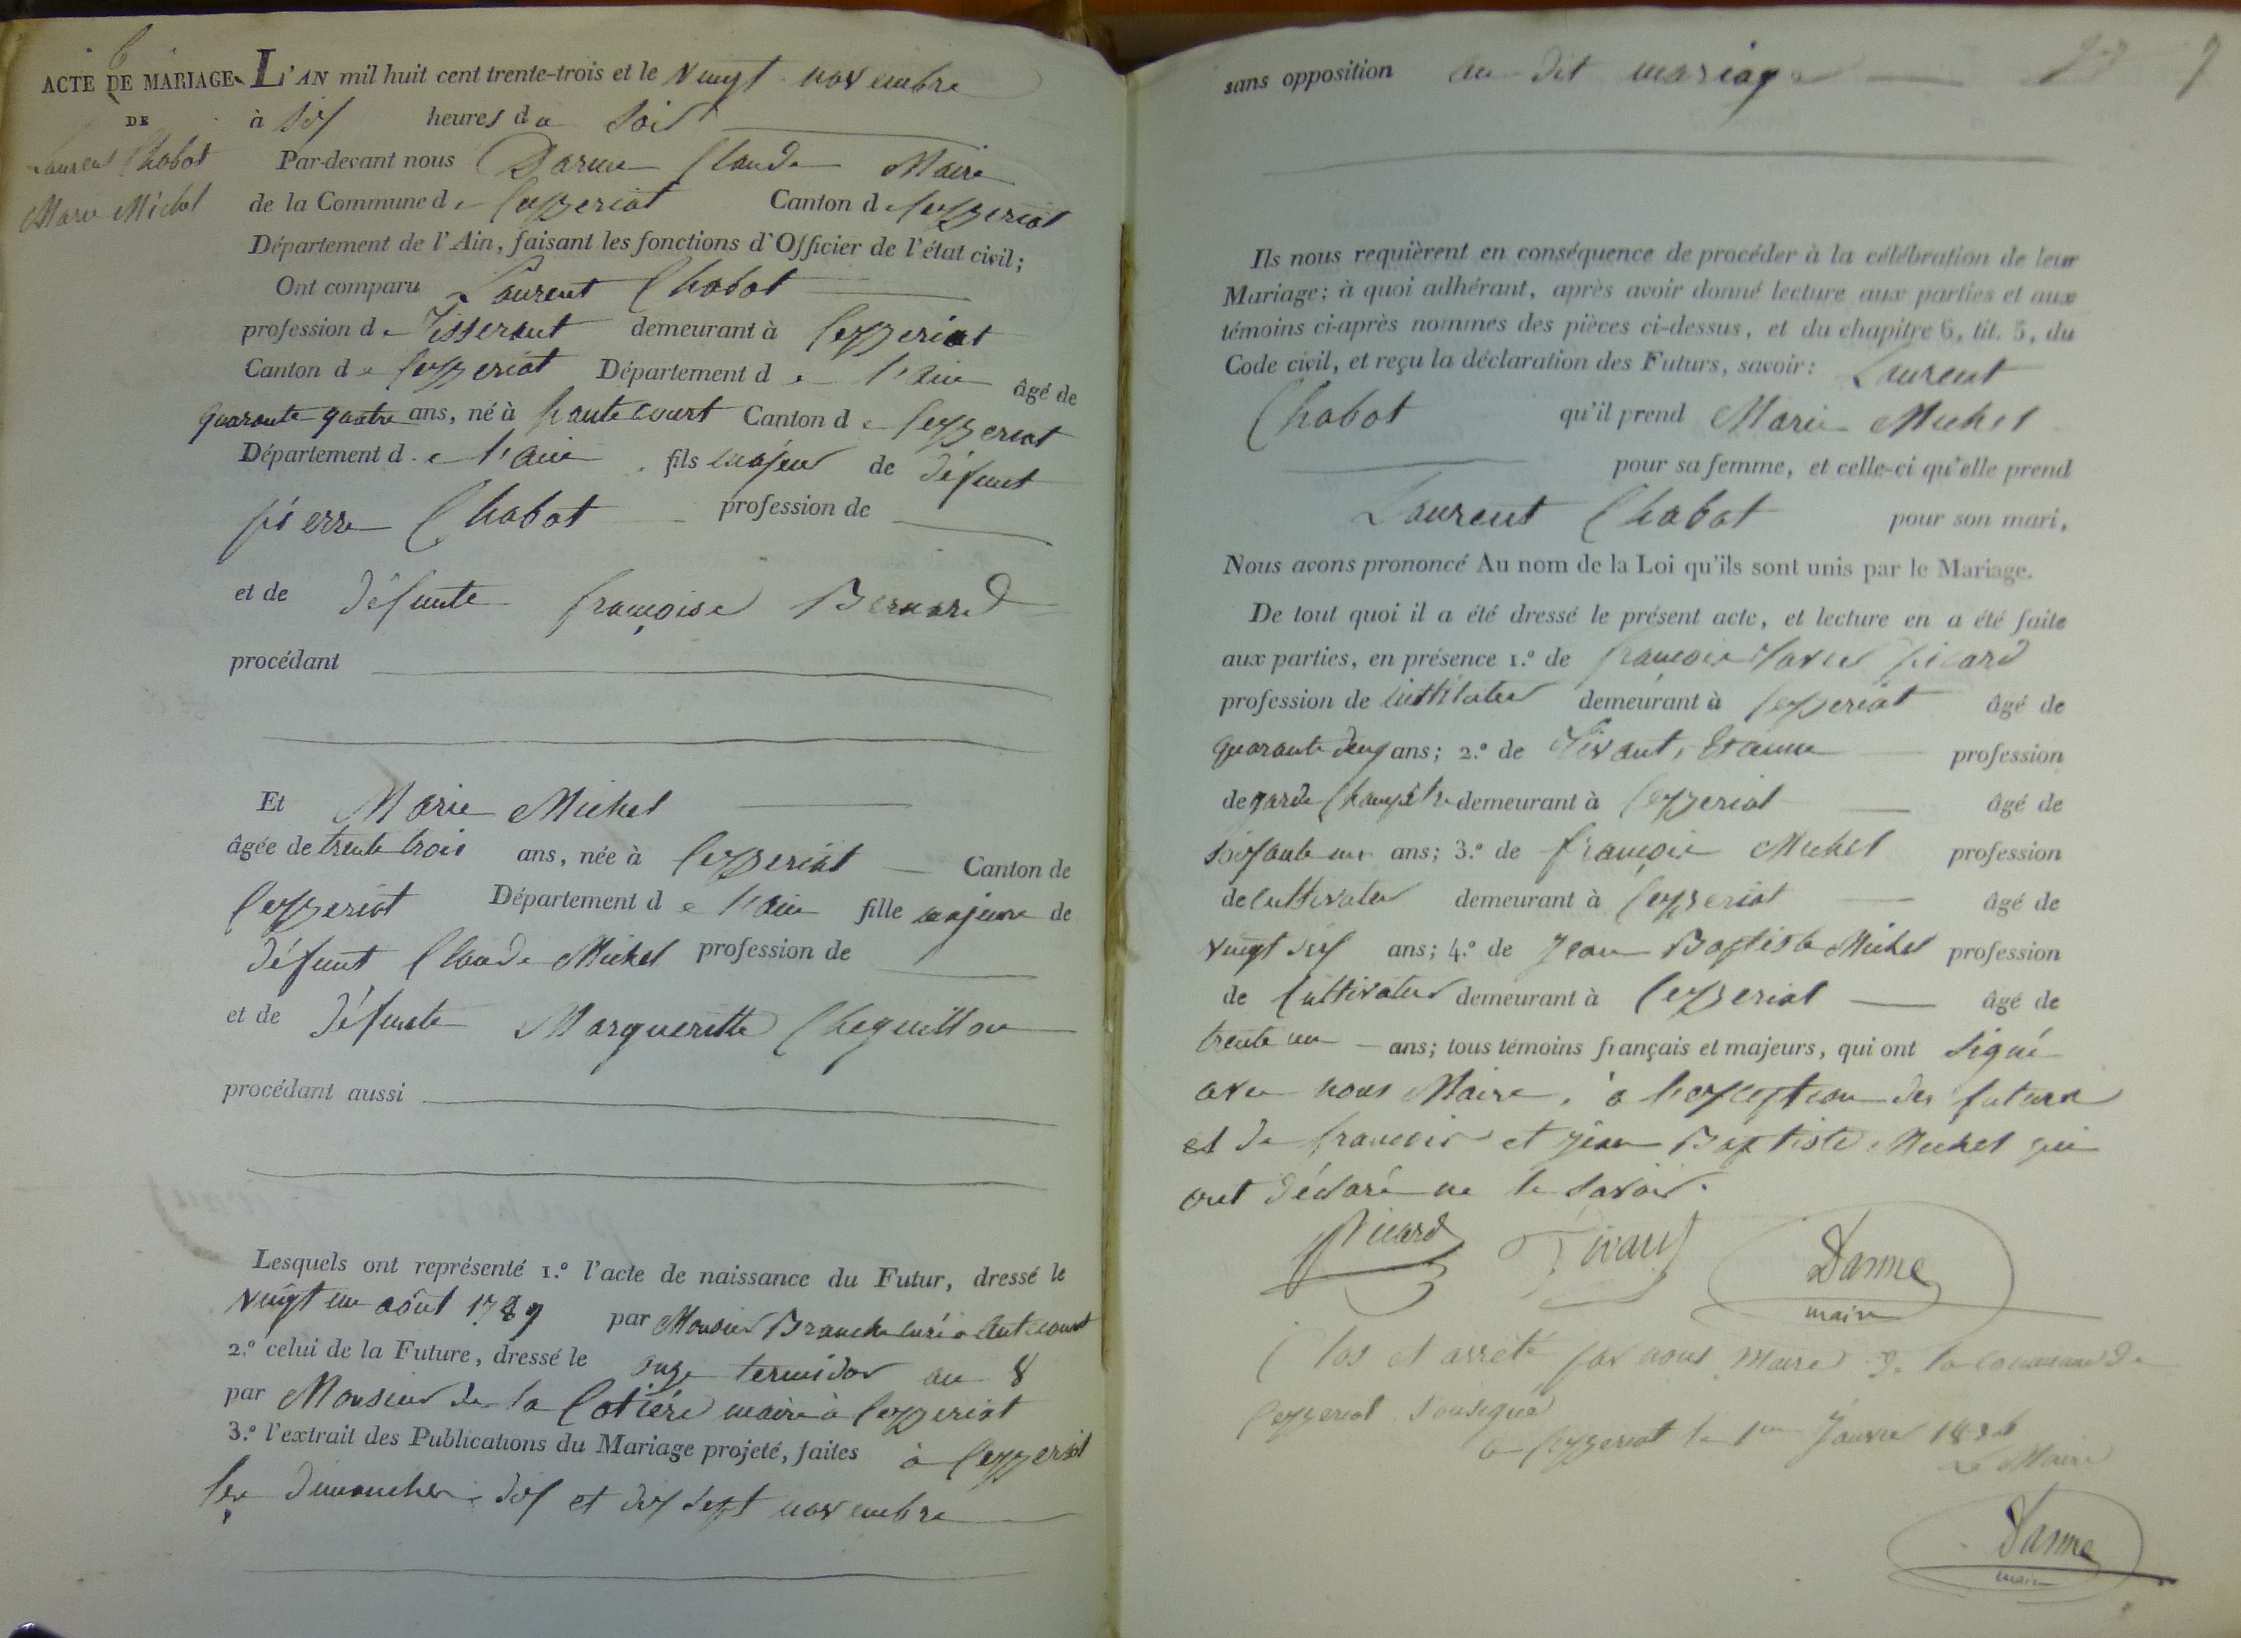 6
ACTE DE MARIAGE
DE
Laurent Chabot
Marie Michel
L'AN mil huit cent trente-trois et le vingt novembre
à six heures du soir
Par-devant nous Darme Claude Maire
de la Commune de Ceyzeriat Canton de Ceyzeriat
Département de l'Ain, faisant les fonctions d'Officier de l'état civil;
Ont comparu Laurent Chabot
profession de Tisserant demeurant à Ceyzeriat
Canton de Ceyzeriat Département de l'ain âgé de
quarante quatre ans, né à hautecourt Canton de Ceyzeriat
Département de l'ain fils majeur de défunt
pierre Chabot profession de
et de défunte françoise Bernard
procédant
Et Marie Michel
âgée de trente trois ans, née à Ceyzeriat Canton de
Ceyzeriat Département de l'ain fille majeure de
défunt Claude Michel profession de
et de défunte Margueritte Chequillon
procédant aussi
Lesquels ont représenté 1.º l'acte de naissance du Futur, dressé le
vingt un août 1789 par Monsieur curé a autecourt
2.º celui de la Future, dressé le onze termidor an 8
par Monsieur de la Cotiére maire a Ceyzeriat
3.º l'extrait des Publications du Mariage projeté, faites à Ceyzeriat
les dimanches dix et dix sept novembre
sans opposition au dit mariage
9
Ils nous requièrent en conséquence de procéder à la célébration de leur
Mariage; à quoi adhérant, après avoir donné lecture aux parties et aux
témoins ci-après nommés des pièces ci-dessus, et du chapitre 6, tit. 5, du
Code civil, et reçu la déclaration des Futurs, savoir: Laurent
Chabot qu'il prend Marie Michel
pour sa femme, et celle-ci qu'elle prend
Laurent Chabot pour son mari,
Nous avons prononcé Au nom de la Loi qu'ils sont unis par le Mariage.
De tout quoi il a été dressé le présent acte, et lecture en a été faite
aux parties, en présence 1.º de françois Xavier picard
profession de instituteur demeurant à Ceyzeriat âgé de
quarante deux ans; 2.º de Tivant, Etienne profession
de garde Champêtre demeurant à Ceyzeriat âgé de
soixante un ans; 3.º de françois Michel profession
de Cultivateur demeurant à Ceyzeriat âgé de
vingt six ans; 4.º de Jean Baptiste Michel profession
de Cultivateur demeurant à Ceyzeriat âgé de
trente un ans; tous témoins français et majeurs, qui ont signé
avec nous Maire, à l'exception des futurs
et de françois et Jean Baptiste Michel qui
ont déclaré ne le savoir.
Picard Tivant Darme
maire
Clos et arreté par nous Maire de la commune de
Ceyzeriat Sousigné
a Ceyzeriat le 1er Janvier 1834
Le Maire
Darme
maire